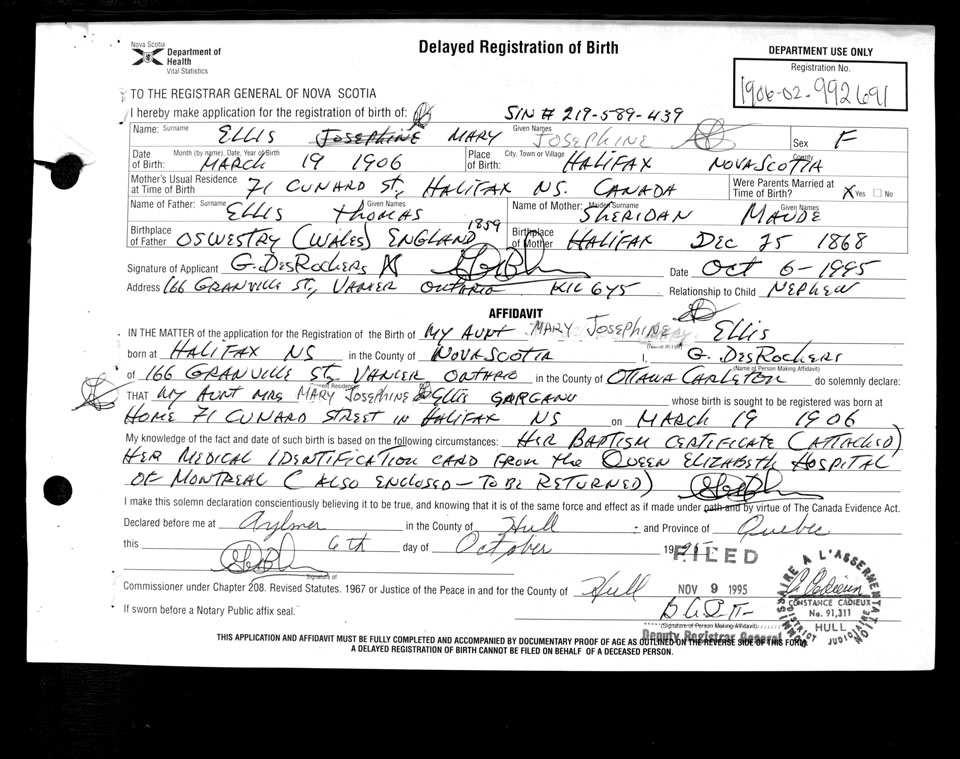 Nova Scotia
Department of
Health
Vital Statistics
Delayed Registration of Birth
DEPARTMENT USE ONLY
Registration No.
1906-02-992691
TO THE REGISTRAR GENERAL OF NOVA SCOTIA
I hereby make application for the registration of birth of:
SIN # 219-589-439
Name: Surname ELLIS JOSEPHINE MARY Given Names JOSEPHINE Sex F
Date of Birth: Month (by name), Date, Year of Birth MARCH 19 1906 Place of Birth: City, Town or Village HALIFAX County NOVA SCOTIA
Mother's Usual Residence at Time of Birth 71 CUNARD ST, HALIFAX NS. CANADA Were Parents Married at Time of Birth? X Yes No
Name of Father: Surname ELLIS Given Names THOMAS Name of Mother: Maiden Surname SHERIDAN Given Names MAUDE
Birthplace of Father OSWESTRY (WALES) ENGLAND 1859 Birthplace of Mother HALIFAX DEC 25 1868
Signature of Applicant G. DESROCHERS X Date OCT 6-1995
Address 166 GRANVILLE ST, VANIER ONTARIO K1L 6Y5 Relationship to Child NEPHEW
AFFIDAVIT
IN THE MATTER of the application for the Registration of the Birth of MY AUNT MARY JOSEPHINE ELLIS
(Name in Full)
born at HALIFAX NS in the County of NOVA SCOTIA I, G. DESROCHERS
(Name of Person Making Affidavit)
of 166 GRANVILLE ST, VANIER ONTARIO in the County of OTTAWA CARLETON do solemnly declare:
Present Residence
THAT MY AUNT MRS MARY JOSEPHINE Ellis GARGANO whose birth is sought to be registered was born at
HOME 71 CUNARD STREET IN HALIFAX NS on MARCH 19 1906
My knowledge of the fact and date of such birth is based on the following circumstances: HER BAPTISM CERTIFICATE (ATTACHED)
HER MEDICAL IDENTIFICATION CARD FROM the QUEEN ELIZABETH HOSPITAL
OF MONTREAL (ALSO ENCLOSED - TO BE RETURNED)
I make this solemn declaration conscientiously believing it to be true, and knowing that it is of the same force and effect as if made under oath and by virtue of The Canada Evidence Act.
Declared before me at Aylmer in the County of Hull and Province of Quebec
this 6th day of October 1995
FILED
Signature of
Commissioner under Chapter 208. Revised Statutes. 1967 or Justice of the Peace in and for the County of Hull
NOV 9 1995
If sworn before a Notary Public affix seal.
(Signature of Person Making Affidavit)
Deputy Registrar General
COMMISSAIRE A L'ASSERMENTATION
CONSTANCE CADIEUX
No. 91,311
HULL
DISTRICT JUDICIAIRE
THIS APPLICATION AND AFFIDAVIT MUST BE FULLY COMPLETED AND ACCOMPANIED BY DOCUMENTARY PROOF OF AGE AS OUTLINED ON THE REVERSE SIDE OF THIS FORM.
A DELAYED REGISTRATION OF BIRTH CANNOT BE FILED ON BEHALF OF A DECEASED PERSON.